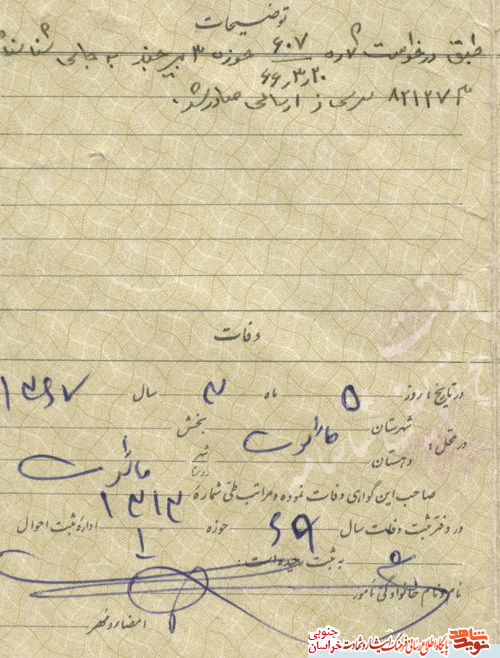 توضیحات
طبق درخواست ۶۰۷ حوزه ۳ بیرجند به جای شناسنامه
۶۶٫۳٫۲۰
۸۲۱۲۷۳ ارسالی صادر شد.
وفات
در تاریخ: روز ۵ ماه ۳ سال ۱۳۶۷
در محل: شهرستان بخش ۱
دهستان شهر
صاحب این گواهی وفات نموده و مراتب طی شماره ۱۳۱۳
در دفتر ثبت وفات سال ۶۹ حوزه ۱ اداره ثبت احوال
به ثبت رسیده است.
نام و نام خانوادگی مامور
امضاء و مهر
نوید شاهد
پایگاه اطلاع رسانی فرهنگ ایثار و شهادت
خراسان جنوبی